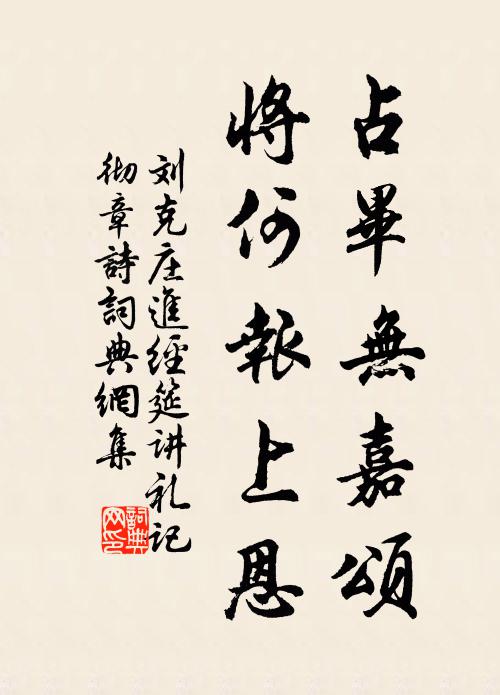 占畢無嘉頌
將何報上恩
刘克庄進經筵讲礼記
彻章詩詞典網集
詞典网印